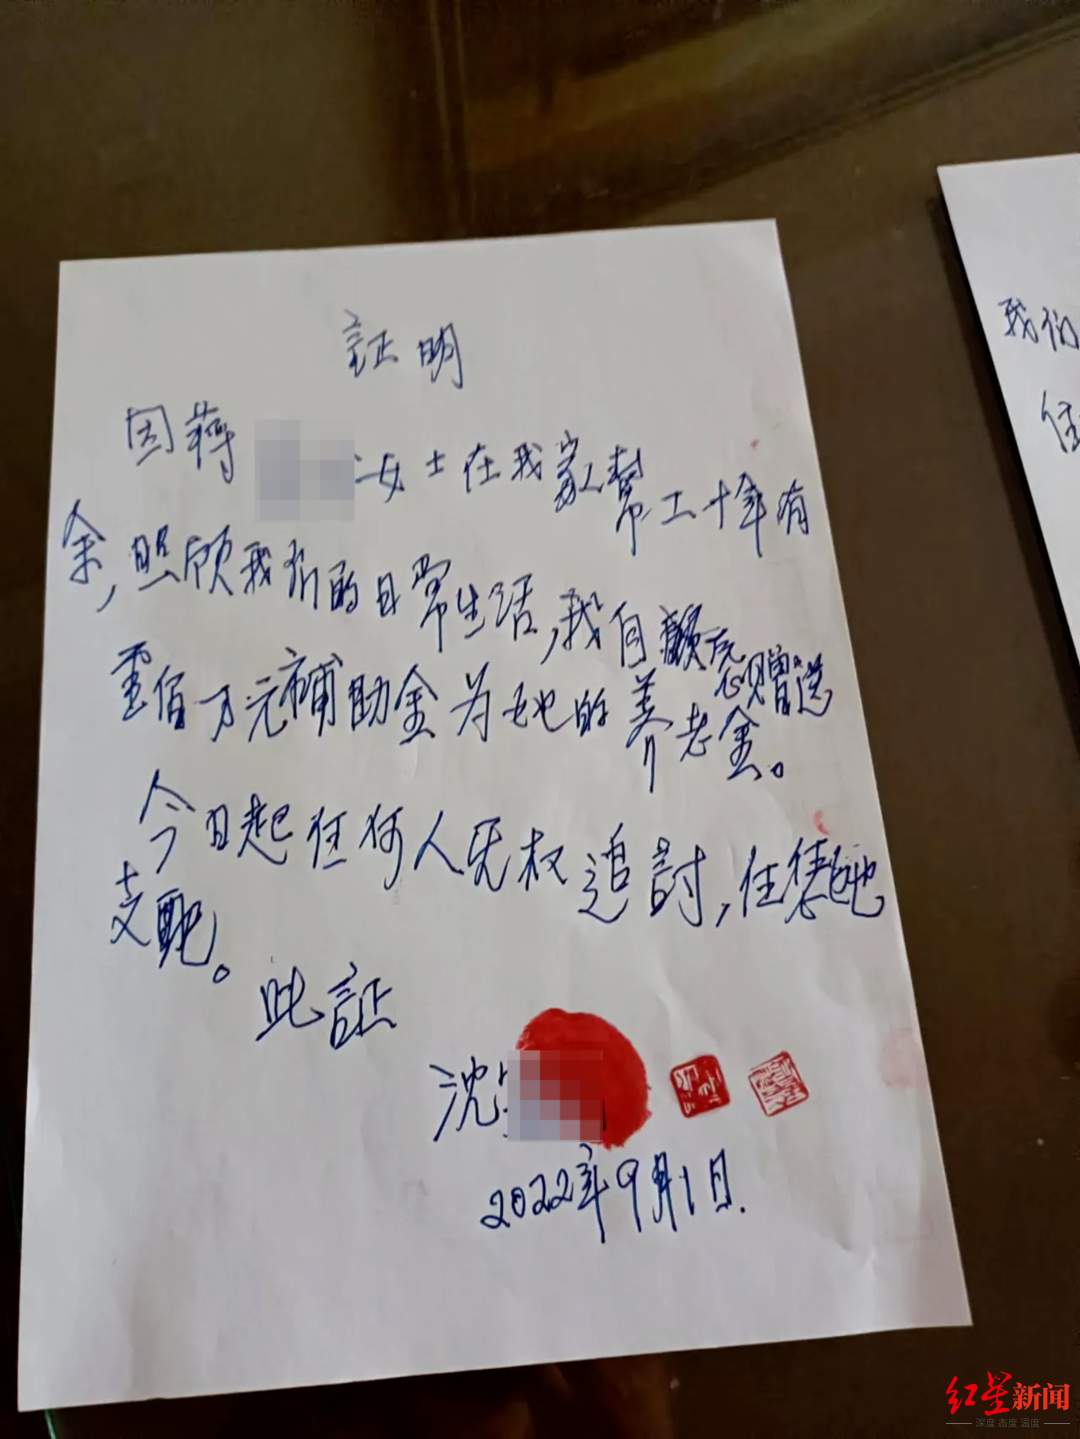 証明
因蒋 女士在我家帮工十年有
余，照顾我们的日常生活，我自願无偿赠送
壹佰万元補助金为她的养老金。
今日起任何人无权追討，任凭她
支配。
此証
沈
2022年9月1日.
我们
住
红星新闻
深度 态度 温度